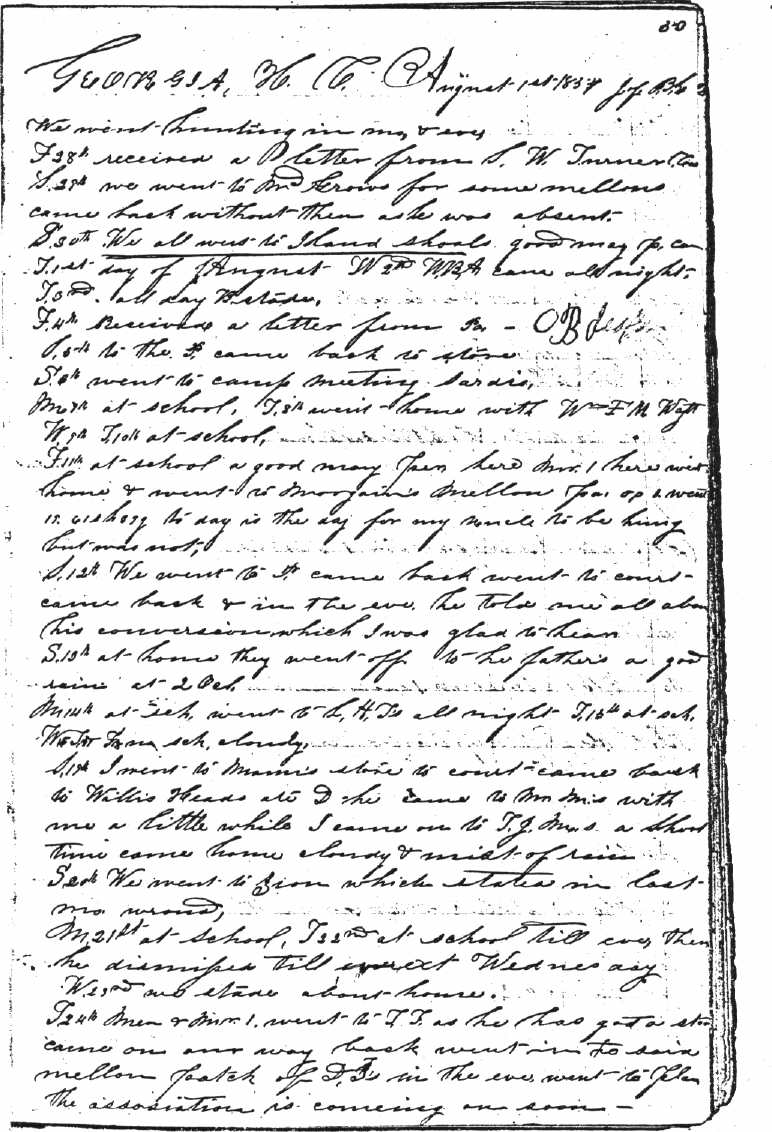 80
GEORGIA, H. C. August 1st 1837
We went hunting in mo, & eve,
F 28th received a letter from S. W. Turner
S. 29th we went to Mrd Crows for some mellons
came back without them as he was absent.
S. 30th We all went to Iland shoals good many p,
T. 1st day of August W 2nd W.B.A came all night.
T. 3rd. all day B. stade.
F. 4th Received a letter from
S. 5th to the P came back to store
S. 6th went to camp meeting Sardis,
M. 7th at school, T. 8th went home with Wm F M
W. 9th T. 10th at school,
F. 11th at school a good many here Mr. 1 here went
home & went to Mellon
to day is the day for my uncle to be hung
but was not,
S. 12th We went to P came back went to court
came back & in the eve. he told me all abou
his conversion which I was glad to hear
S. 13th at home they went off to he father's a good
rain at 2 Ocl.
M. 14th at sch, went to L, H, Ts all night T. 15th at sch.
sch, cloudy,
S. 19th I went to store to court came back
to Willis Heads ate D. he came to with
me a little while I came on to T. J. a short
time came home cloudy & mist of rain
S 20th We went to Zion which stated in last
mo wrong,
M. 21st at school, T 22nd at school till eve, then
he dismissed till next Wednesday
W. 23rd we stade about house.
T. 24th & Mr. 1. went to T. T. as he has got a
came on our way back went in to said
mellon patch of D, Ts in the eve went to
the association is coming on soon —